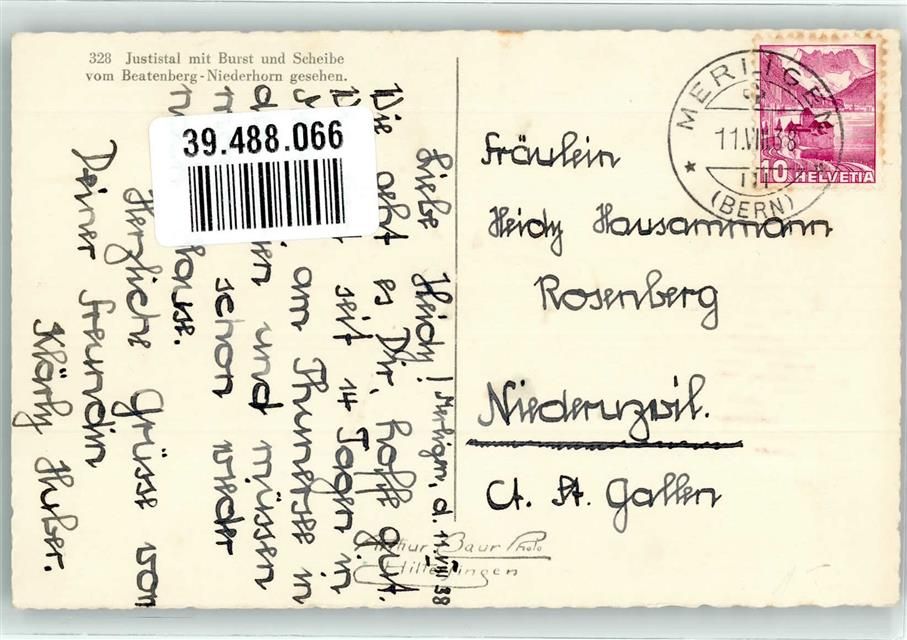 328 Justistal mit Burst und Scheibe
vom Beatenberg-Niederhorn gesehen.
39.488.066
MERLIGEN
11.VIII.38
(BERN)
10 HELVETIA
Fräulein
Heidy Hausammann
Rosenberg
Niederuzwil.
Ct. St. Gallen
Merligen, d. 11.VIII 38
Liebe Heidy!
Wie geht es Dir, hoffe gut.
seit 14 Tagen in
am Thunersee in
und müssen
schon wieder
Hause.
Herzliche Grüsse von
Deiner Freundin
Klärly Huber.
Arthur Baur Photo
Hilterfingen